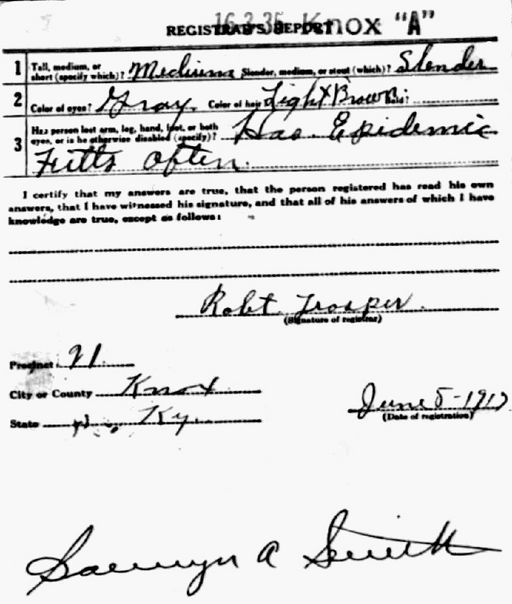 16-3-35-A Knox "A"
REGISTRAR'S REPORT
1 Tall, medium, or short (specify which)? Medium Slender, medium, or stout (which)? Slender
2 Color of eyes? Gray Color of hair Light Brown Bald?
3 Has person lost arm, leg, hand, foot, or both eyes, or is he otherwise disabled (specify)? Has Epidemic
Fitts often.
I certify that my answers are true, that the person registered has read his own
answers, that I have witnessed his signature, and that all of his answers of which I have
knowledge are true, except as follows:
Robt Trosper
(Signature of registrar)
Precinct 21
City or County Knox
State Ky.
June 5-1917
(Date of registration)
A Smith